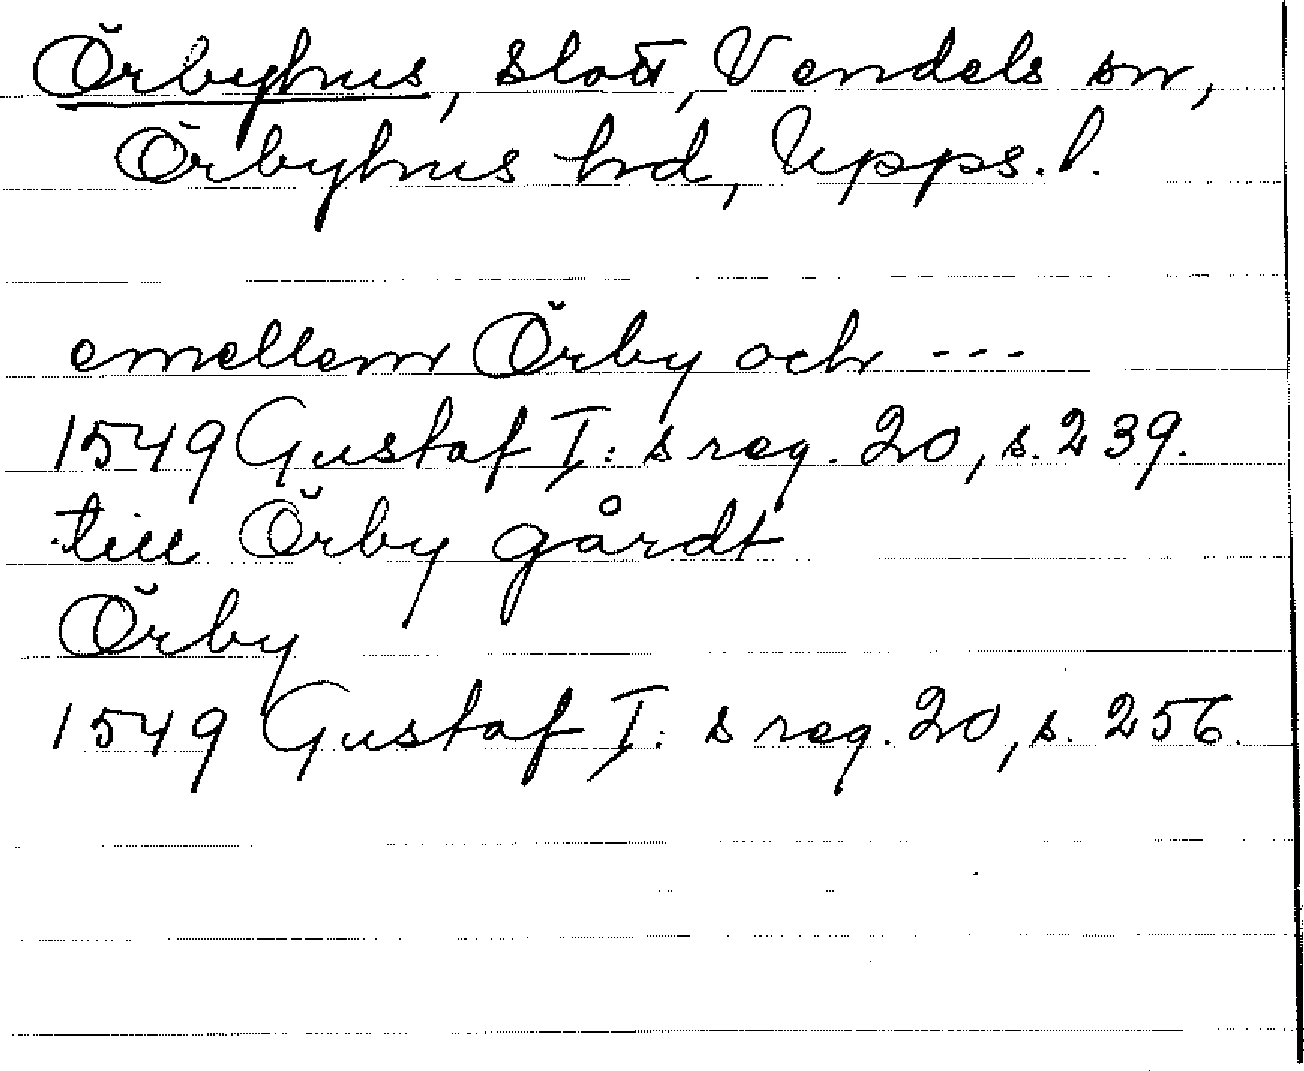 Örbyhus, slott, Vendels sn,
Örbyhus hd, Upps. l.
emellem Örby och ---
1549 Gustaf I: s reg. 20, s. 239.
till Örby gårdt
Örby
1549 Gustaf I: s reg. 20, s. 256.